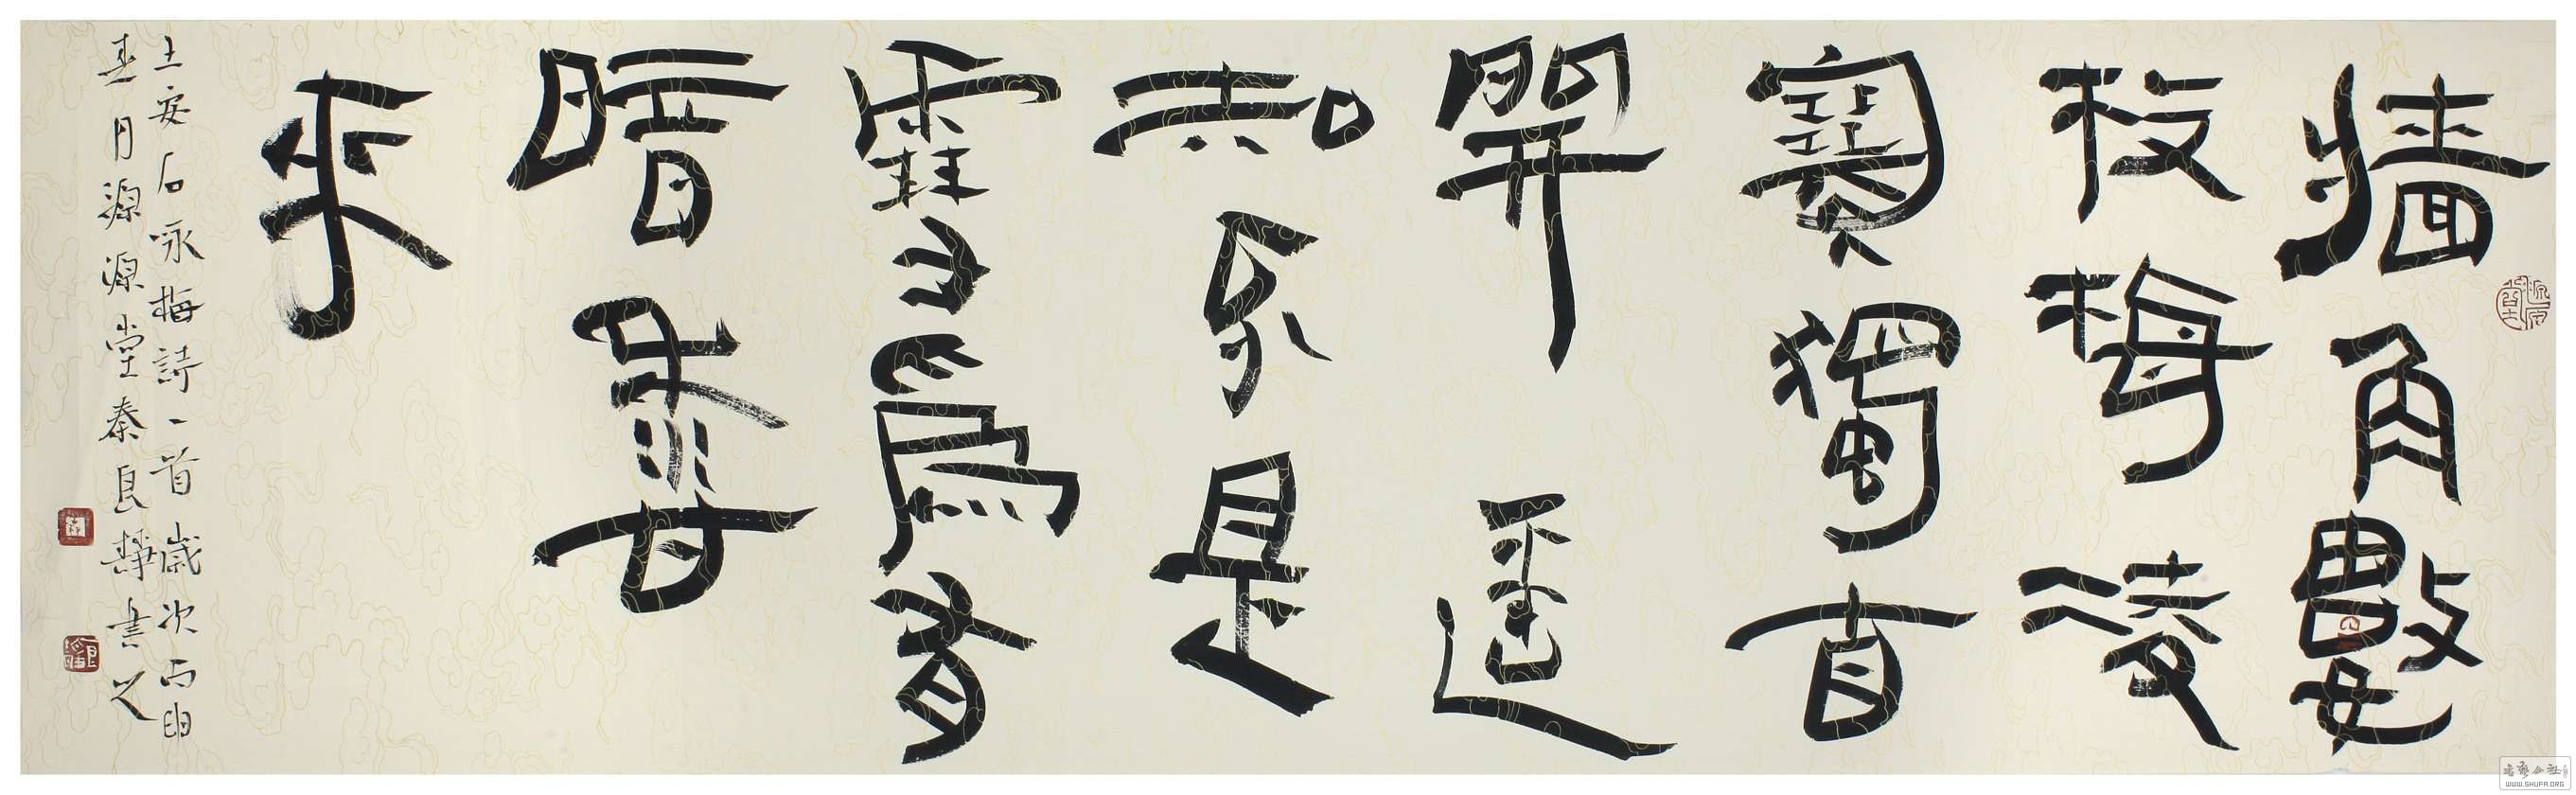 牆角數
枝梅凌
寒獨自
開遥
知不是
雪為有
暗香
来
王安石咏梅詩一首歲次丙申
春月源源堂秦良静書之
WWW.SHUFA.ORG